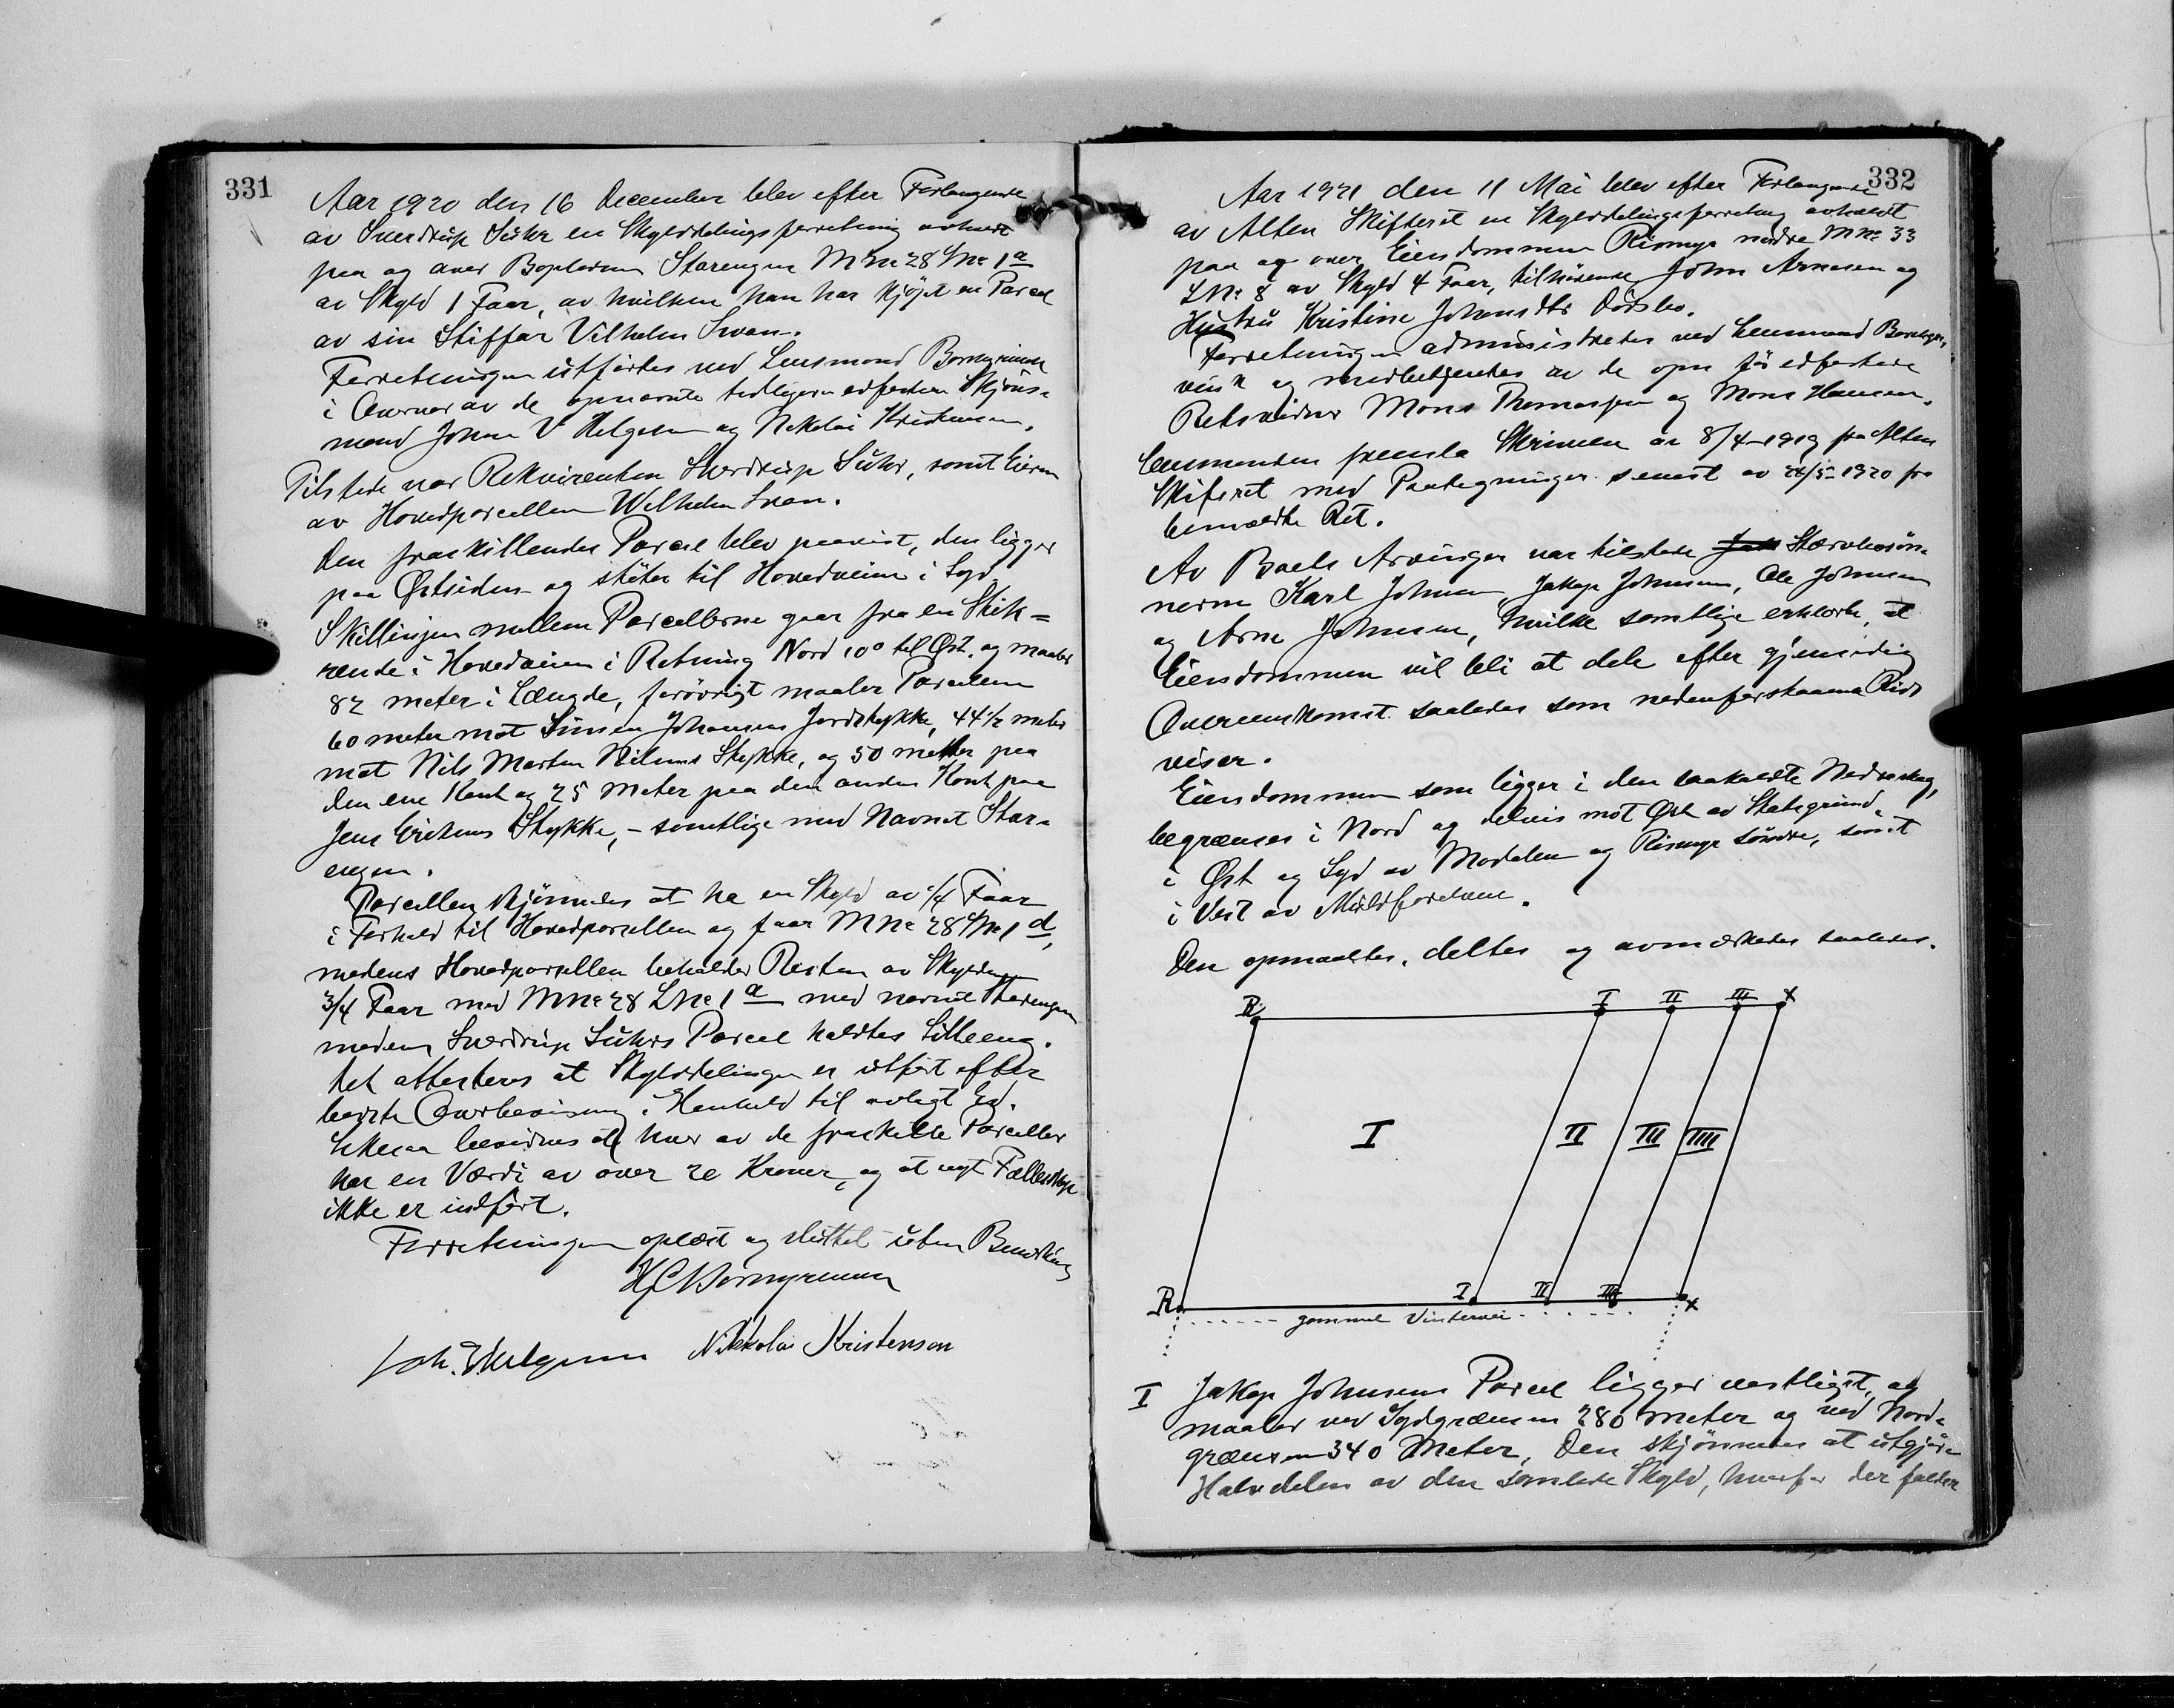 331
Aar 1920 den 16 December blev efter Forlangende
av Sverdrup Suhr en Skylddelingsforretning avholdt
paa og over Boplassen Starengen M No 28 L No 1 a
av Skyld 1 Faar, av hvilken han har kjøpt en Parcel
av sin Stiffar Vilhelm Svan.
Forretningen utførtes ved Lensmand
i Overvær av de opnævnte tidligere edfæstede Skjøns-
mænd Johan V Helgesen og Nikolai Kristensen.
Tilstede var Rekvirenten Sverdrup Suhr, samt Eieren
av Hovedparcellen Wilhelm Svan.
Den fraskillendes Parcel blev paavist, den ligger
paa Østsiden og støter til Hovedveien i Syd
Skillingen mellem Parcellerne gaar fra en Stik=
rende i Hovedveien i Retning Nord 10° til Øst, og maaler
82 meter i Længde, forøvrigt maaler Parcellen
60 meter mot Simon Johansens Jordstykke, 44 1/2 meter
mot Nils Martin Nilsens Stykke, og 50 meter paa
den ene Kant og 25 Meter paa den anden Kant paa
Jens Eriksens Stykke, - samtlige med Navnet Star-
engen.
Parcellen skjønnedes at ha en Skyld av 1/4 Faar
i Forhold til Hovedparcellen og faar M No 28 L No 1 d,
medens Hovedparcellen beholder Resten av Skylden
3/4 Faar med M No 28 L No 1 a med navnet Starengen
medens Sverdrup Suhrs Parcel kaldtes Lilleeng.
Det attesteres at Skylddelingen er utført efter
bedste Overbevisning i Henhold til avlagt Ed.
Likesaa bevidnes at hver av de fraskilte Parceller
har en Værdi av over 20 Kroner, og at nyt Fællesskap
ikke er indført.
Forretningen oplæst og sluttet uten Bemerkning
Joh. V Helgesen Nikkolai Kristenson
332
Aar 1921 den 11 Mai blev efter Forlangende
av Alten Skifteret en Skylddelingsforretning avholdt
paa og over Eiendommen Rismyr nedre M No 33
L No 8 av Skyld 4 Faar, tilhørende John Arnesen og
Hustru Kristine Johansdtr Dødsbo.
Forretningen administreredes ved Lensmand
og medbetjentes av de opn før edfæstede
Retsvidner Mons Thomassen og Mons Hansen.
Lensmanden fremla Skrivelse av 8/4-1919 fra Alten
Skifteret med Paategninger senest av 1920 fra
bemældte Ret.
Av Boets Arvinger var tilstede Stærvbosøn-
nerne Karl Johnsen, Jakop Johnsen, Ole Johnsen
og Arne Johnsen, hvilke samtlige erklærte, at
Eiendommen vil bli at dele efter gjensidig
Overenskomst saaledes som nedenforstaaende Rids
viser.
Eiendommen som ligger i den saakaldte Nedreskog,
begrænses i Nord og delvis mot Øst av Statsgrund
i Øst og Syd av Modalen og Rismyr søndre, samt
i Vest av
Den opmaaltes, deltes og avmærkedes saaledes.
R I II III X
I II III IIII
R I II III X
gammel Vintervei
I Jakop Johnsens Parcel ligger vestligst, og
maaler ved Sydgrænsen 280 meter og ved Nord-
grænsen 340 Meter, Den skjønnedes at utgjøre
Halvdelen av den samlede Skyld, hvorfor der falder